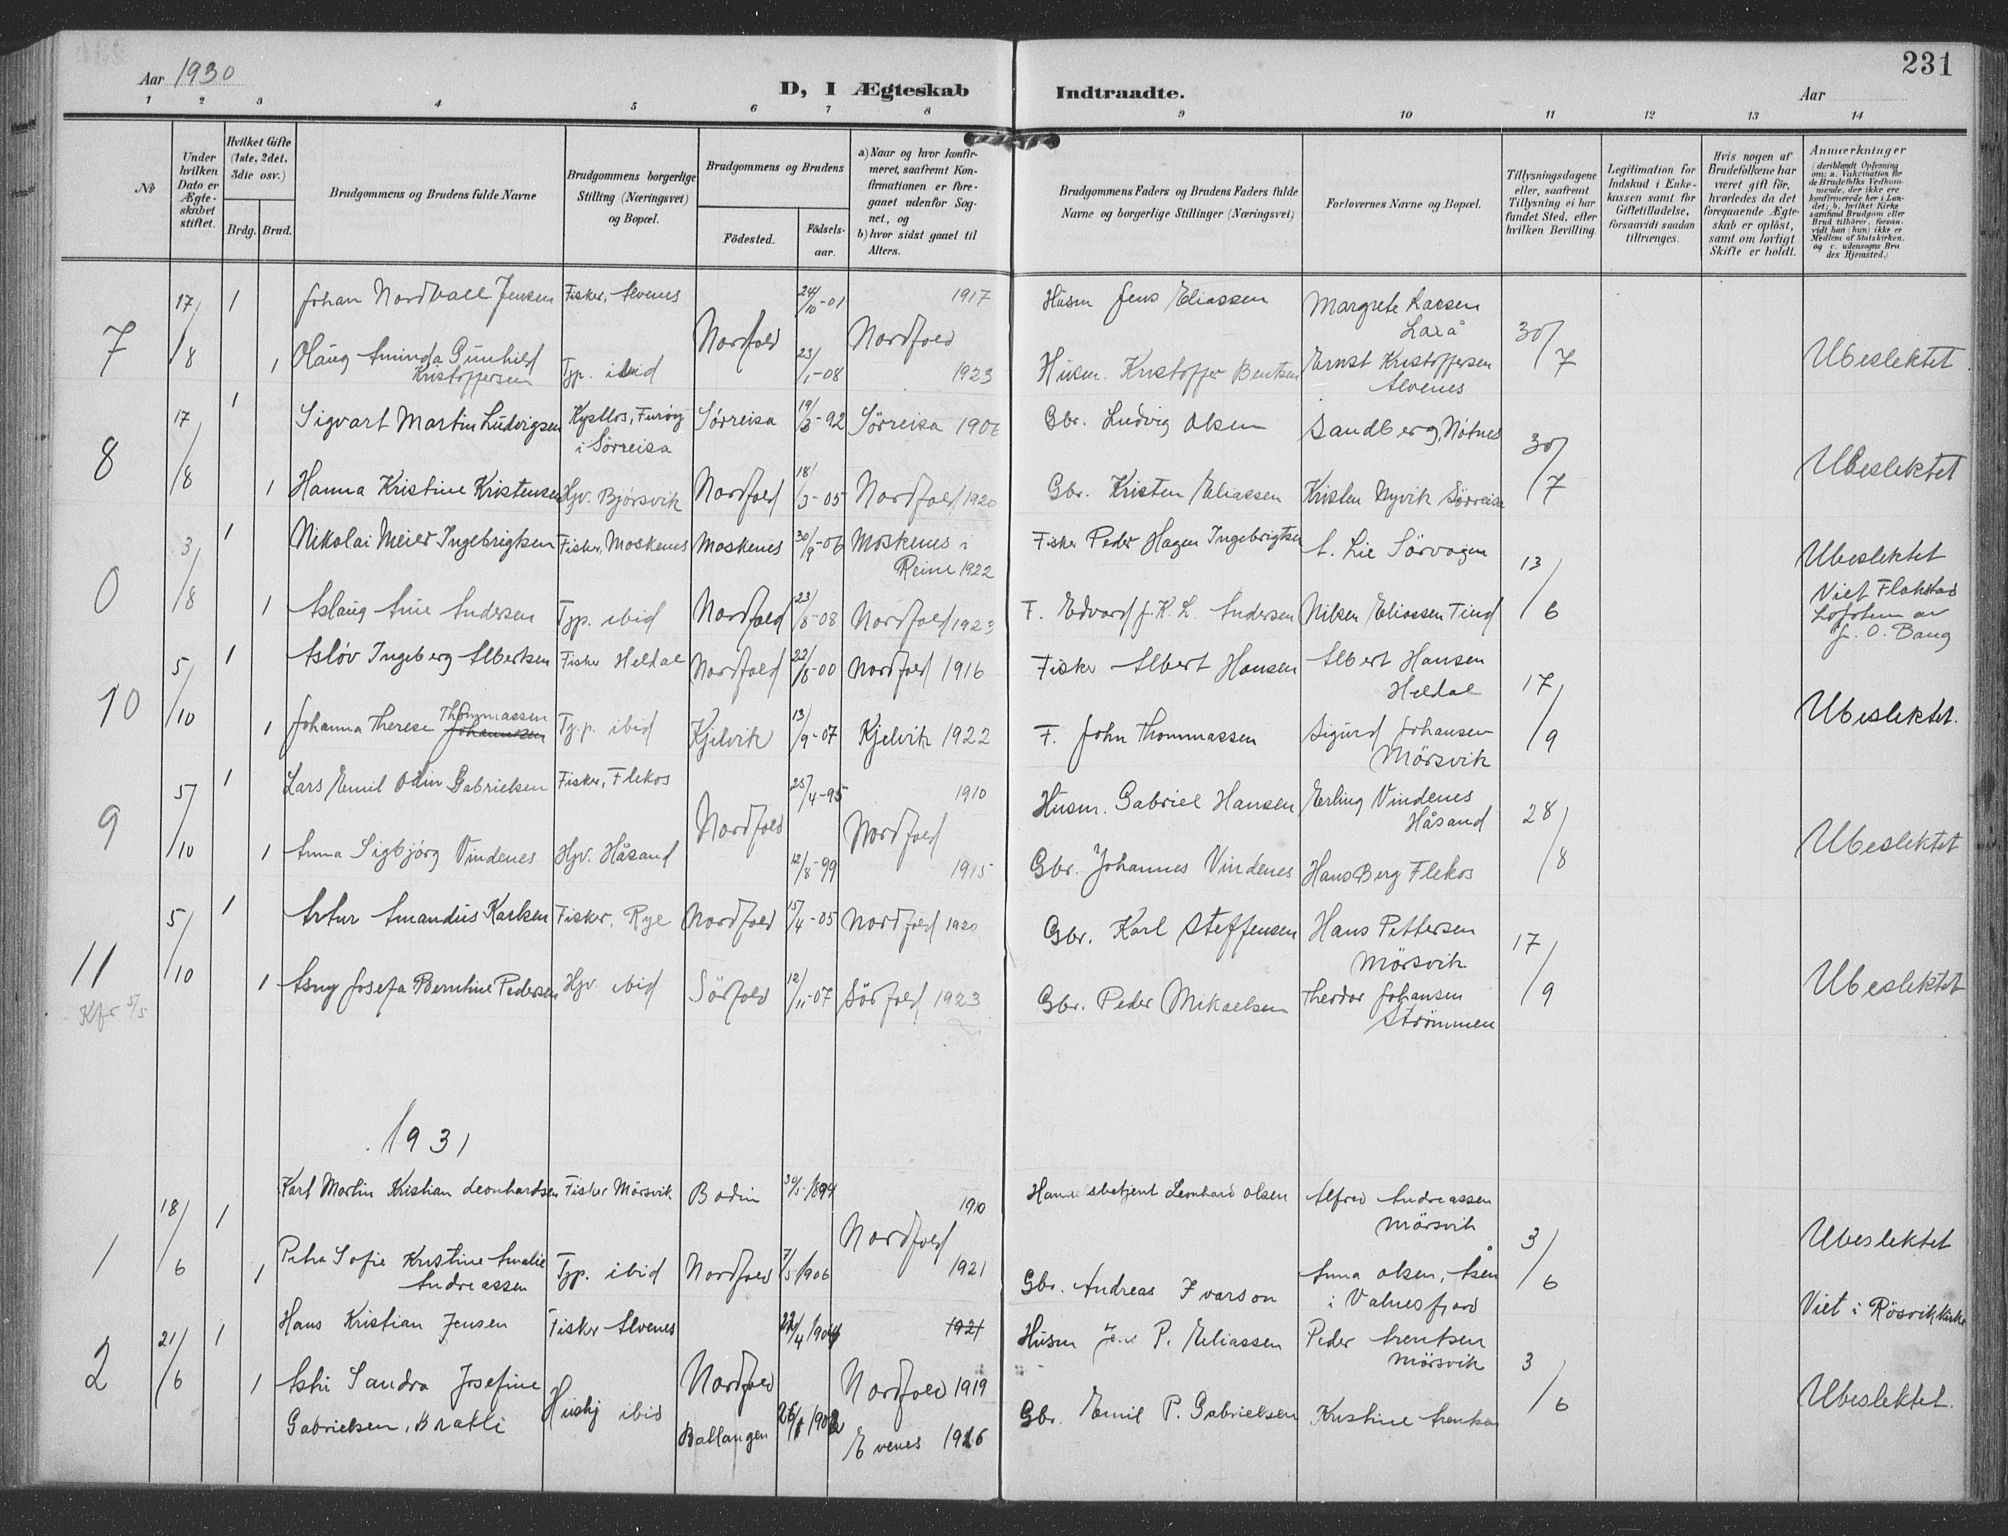 231
Aar 1930
D, I Ægteskab Indtraadte.
Aar
1 2 3 4 5 6 7 8 9 10 11 12 13 14
No
Under hvilken Dato er Ægteskabet stiftet.
Hvilket Gifte (1ste, 2det, 3die osv.)
Brdg. Brud.
Brudgommens og Brudens fulde Navne
Brudgommens borgerlige Stilling (Næringsvei) og Bopæl.
Brudgommens og Brudens
Fødested. Fødselsaar.
a) Naar og hvor konfirmeret, saafremt Konfirmationen er foregaaet udenfor Sognet, og
b) hvor sidst gaaet til Alters.
Brudgommens Faders og Brudens Faders fulde Navne og borgerlige Stillinger (Næringsvei)
Forlovernes Navne og Bopæl.
Tillysningsdagene eller, saafremt Tillysning ei har fundet Sted, efter hvilken Bevilling.
Legitimation for Indskud i Enkekassen samt for Giftetilladelse, forsaavidt saadan tiltrænges.
Hvis nogen af Brudefolkene har været gift før, hvorledes da det foregaaende Ægteskab er opløst, samt om lovligt Skifte er holdt.
Anmærkninger
(deriblandt Oplysning om: a. Vakcination for de Brudefolks Vedkommende, der ikke ere konfirmerede her i Landet; b. hvilket Kirkesamfund Brudgom eller Brud tilhører, forsaavidt han (hun) ikke er Medlem af Statskirken, og c. udensogns Brudes Hjemsted.)
7 17/8 1 Johan Nordvall Jensen Fisker, Alvenes 24/10-01 1917 Husm Jens Eliassen Margrete Larsen Laxå 30/7
Nordfold Nordfold Ubeslektet
1 Olaug Aminda Gunhild Kristoffersen Tjp. ibid 23/1-08 1923 Husm. Kristoffer Bentsen Ernst Kristoffersen Alvenes
8 17/8 1 Sigvart Martin Ludvigsen Kystlos, Furøy i Sørreisa Sørreisa 19/3-92 Sørreisa Gbr. Ludvig Olsen Sandberg, Nøtnes 30/7 Ubeslektet
1 Hanna Kristine Kristensen Hjv. Bjørsvik Nordfold 18/3-05 Nordfold 1920 Gbr. Kristen Eliassen Kristen Nyvik Sørreisa
0 3/8 1 Nikolai Meier Ingebrigtsen Fisker, Moskenes Moskenes 30/9-06 Moskenes i Reine 1922 Fisker Peder Hagen Ingebrigtsen A. Lie Sørvagen 13/6 Ubeslektet
1 Aslaug Aine Andersen Tjp. ibid Nordfold 23/8-08 Nordfold 1923 F. Edvard J. K. L. Andersen Nilsen Eliassen Tind Viet Flakstad Lofoten av J. O. Bang
10 5/10 1 Asløv Ingeberg Albertsen Fisker Heldal Nordfold 22/8-00 Nordfold 1916 Fisker Albert Hansen Albert Hansen Heldal 17/9 Ubeslektet.
1 Johanna Therese Thommassen Johannesen Tj.p. ibid Kjelvik 13/9-07 Kjelvik 1922 F. John Thommassen Sigurd Johansen Mörsvik
9 5/10 1 Lars Emil Odin Gabrielsen Fisker, Flekos 25/4-95 1910 Husm. Gabriel Hansen Erling Vindenes Håsand 28/8
Nordfold Nordfold Ubeslektet
1 Anna Sigbjørg Vindenes Hjv. Håsand 12/8-99 1915 Gbr. Johannes Vindenes Hans Berg Flekos
11 5/10 1 Artur Amandus Karlsen Fisker, Rye Nordfold 15/4-05 Nordfold 1920 Gbr. Karl Steffensen Hans Pettersen Mörsvik 17/9 Ubeslektet
Kfr 5/5
1 Asny Josefa Berntine Pedersen Hjv. ibid Sörfold 12/11-07 Sörfold 1923 Gbr. Peder Mikaelsen Theodor Johansen Strömmen
1931
1 18/6 1 Karl Martin Kristian Leonhardsen Fisker Mörsvik Bodin 30/5-1894 1910 Leonhard Olsen Alfred Andreassen Mörsvik 3/6
Nordfold Ubeslektet
1 Petra Sofie Kristine Amalie Andreassen Tjp. ibid Nordfold 7/5 1906 1921 Gbr. Andreas Ivarson Anna Olsen, Åsen i Valnesfjord
Viet i Rösvik kirke
2 21/6 1 Hans Kristian Jensen Fisker Alvenes 22/4 1904 1921 Husm Jens P. Eliassen Peder Arentsen Mörsvik 3/6
Nordfold Nordfold 1919
1 Astri Sandra Josefine Gabrielsen, Bratli Hushj ibid Ballangen 26/1 1902 Evenes 1916 Gbr. Emil P. Gabrielsen Kristine Arentsen Ubeslektet.